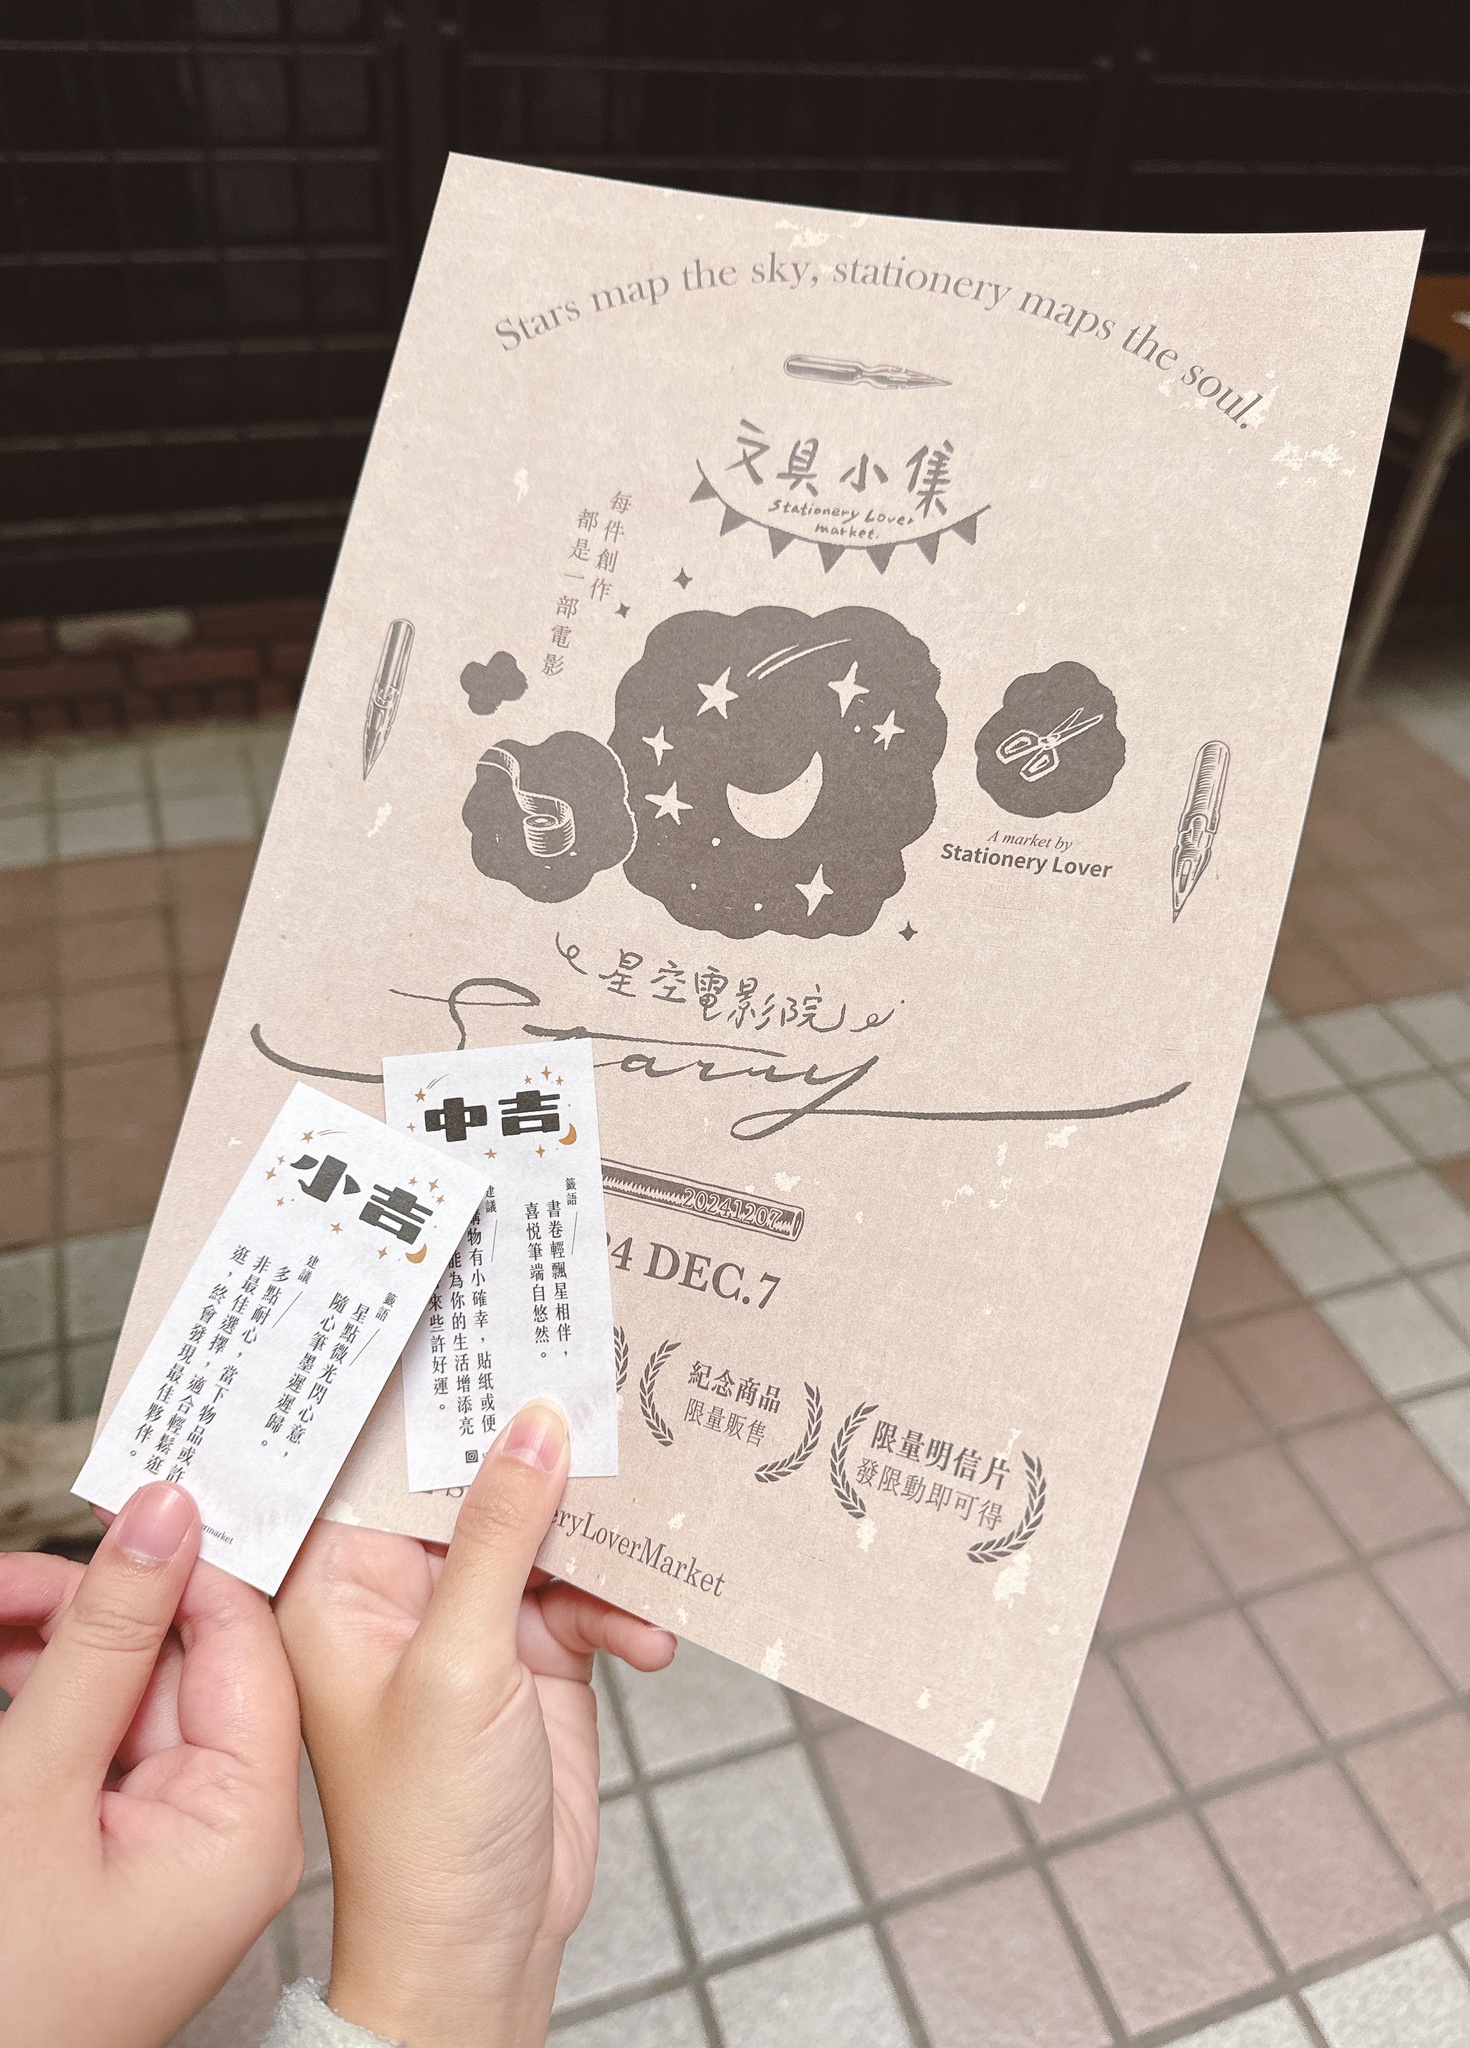 Stars map the sky, stationery maps the soul.
文具小集
Stationery Lover
market.
每件創作
都是一部電影
A market by
Stationery Lover
星空電影院
Starry
20241207
24 DEC.7
紀念商品
限量販售
限量明信片
發限動即可得
eryLoverMarket
中吉
籤語
書卷輕飄星相伴,
喜悅筆端自悠然。
建議
購物有小確幸,貼紙或便
能為你的生活增添亮
來些許好運。
小吉
籤語
星點微光閃心意,
隨心筆墨遲遲歸。
建議
多點耐心,當下物品或許
非最佳選擇,適合輕鬆逛
逛,終會發現最佳夥伴。
ermarket